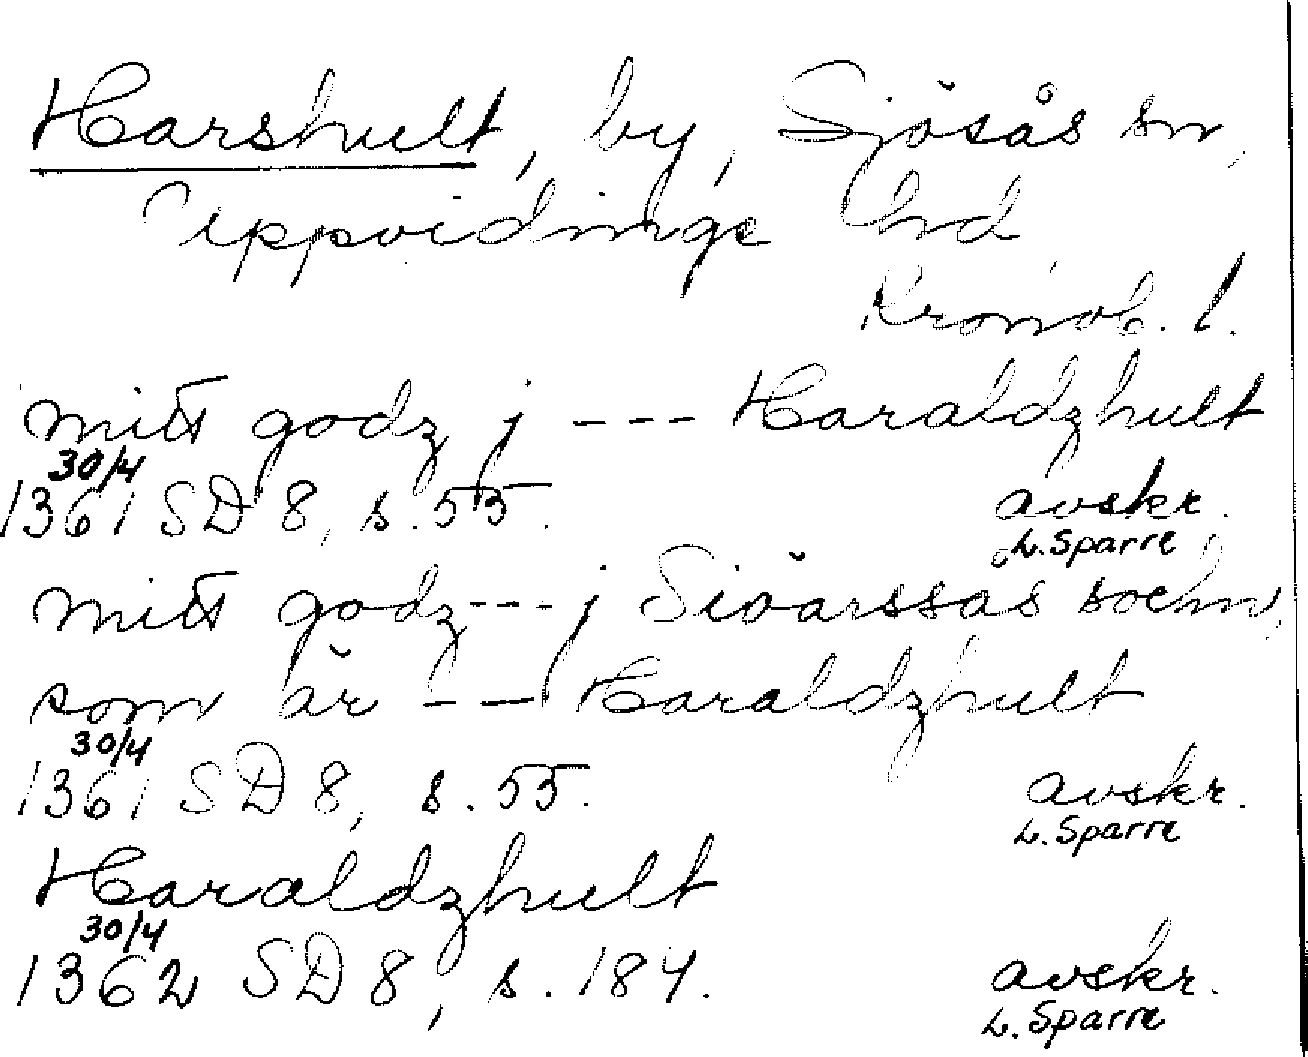 Harshult, by, Sjösås sn,
Uppvidinge hd,
Kronob. l.
mitt godz j --- Haraldzhult
30/4
1361 SD 8, s. 55. avskr.
L. Sparre
mitt godz --- j Siöarssås sochn,
som är --- Haraldzhult
30/4
1361 SD 8, s. 55. avskr.
L. Sparre
Haraldzhult
30/4
1362 SD 8, s. 184. avskr.
L. Sparre